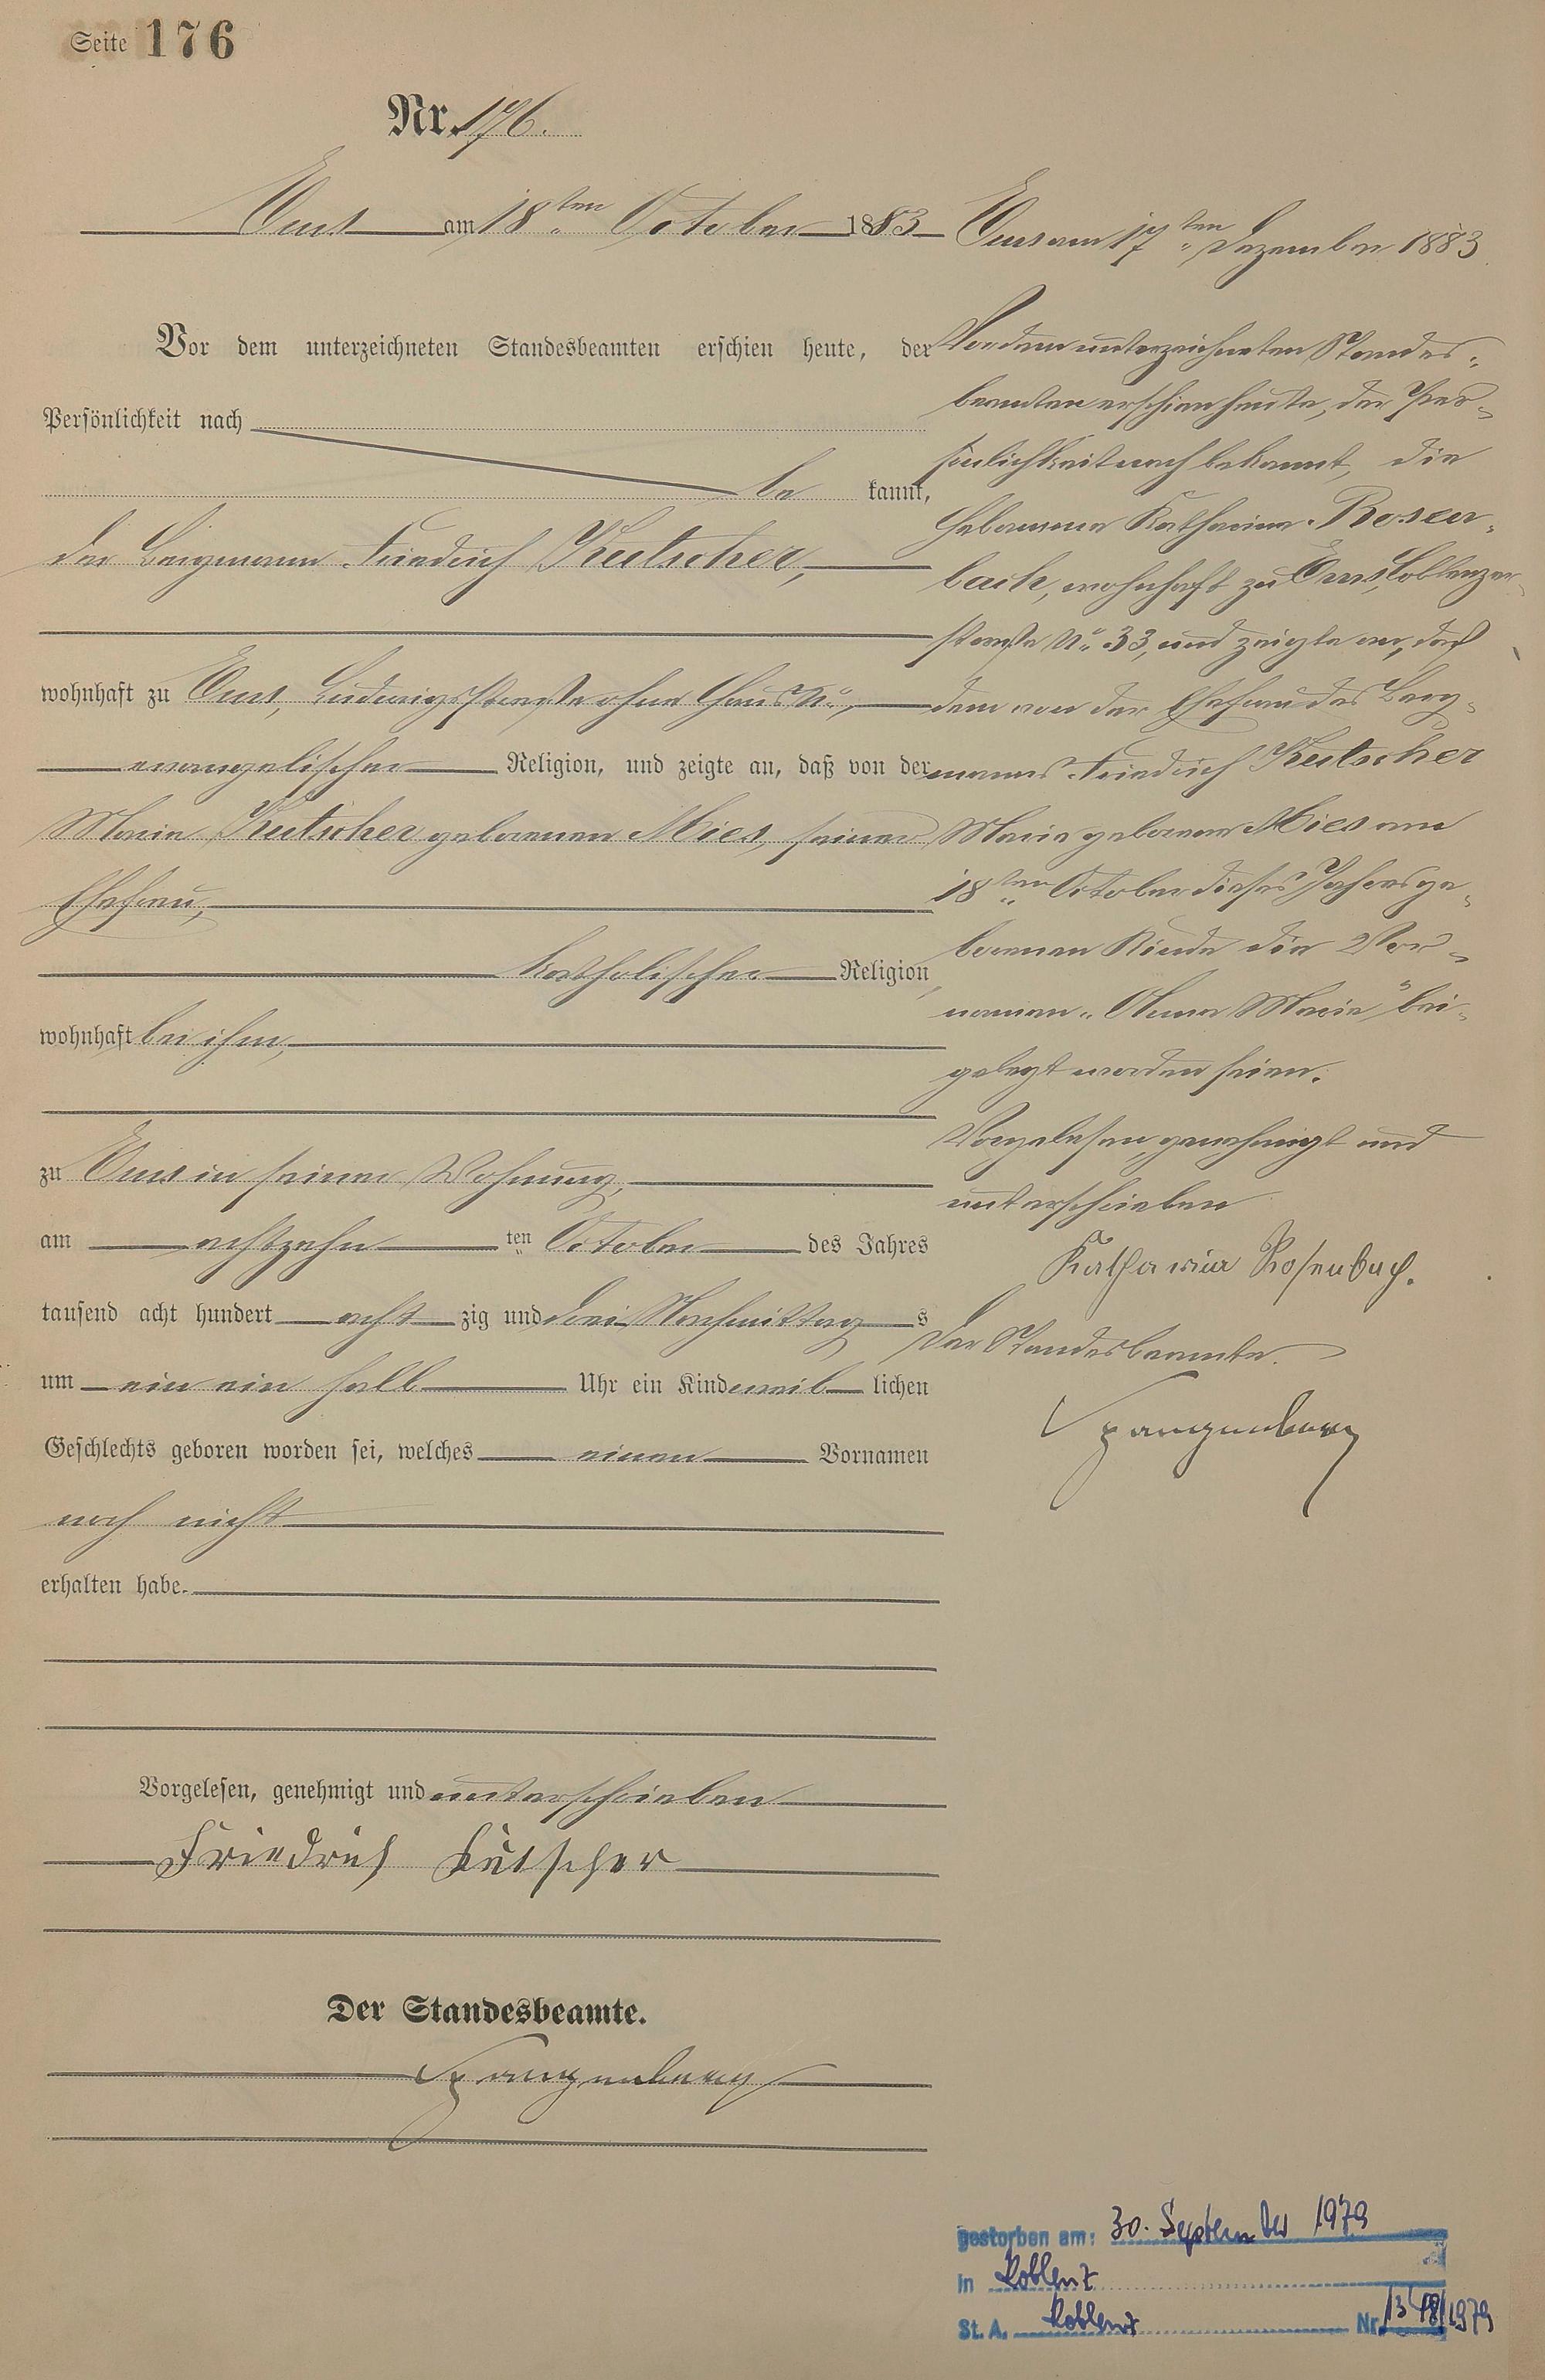 Seite 176
Nr. 176.
Ems am 18ten October 1883
Vor dem unterzeichneten Standesbeamten erschien heute, der
Persönlichkeit nach
be kannt,
der Bergmann Friedrich Kutscher,
wohnhaft zu Ems, Ludwigsstraße ohne Haus No,
evangelischer Religion, und zeigte an, daß von der
Marie Kutscher geborenen Mies, seiner
Ehefrau,
katholischer Religion,
wohnhaft bei ihm,
zu Ems in seiner Wohnung,
am achtzehn ten October des Jahres
tausend acht hundert acht zig und drei Nachmittag s
um ein ein halb Uhr ein Kind weib lichen
Geschlechts geboren worden sei, welches einen Vornamen
noch nicht
erhalten habe.
Vorgelesen, genehmigt und unterschrieben
Friedrich Kutscher
Der Standesbeamte.
Spangenberg
Ems am 17ten Dezember 1883.
Vor dem unterzeichneten Standes-
beamten erschien heute, der Per-
sönlichkeit nach bekannt, die
Hebamme Katharina Rosen-
bach, wohnhaft zu Ems, Coblenzer-
straße No 33, und zeigte an, daß
dem von der Ehefrau des Berg-
manns Friedrich Kutscher
Marie geborene Mies am
18ten October dieses Jahres ge-
borenen Kinde die Vor-
namen „Anna Maria" bei-
gelegt worden seien.
Vorgelesen, genehmigt und
unterschrieben
Katharina Rosenbach.
Der Standesbeamte.
Spangenberg
gestorben am: 30. September 1979
in Koblenz
St. A. Koblenz Nr. 1318/1979